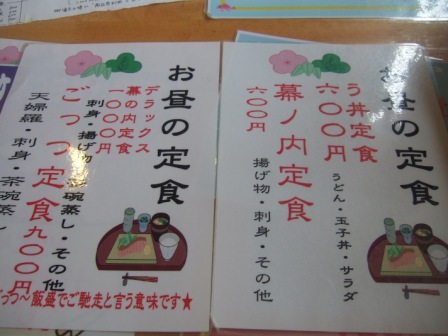 お昼の定食
デラックス
幕の内定食
一〇〇〇円
刺身・揚げ物・茶碗蒸し・その他
ごっつ定食九〇〇円
天婦羅・刺身・茶碗蒸し
っつ～飯盛でご馳走と言う意味です★
お昼の定食
う丼定食
六〇〇円
うどん・玉子丼・サラダ
幕ノ内定食
六〇〇円
揚げ物・刺身・その他